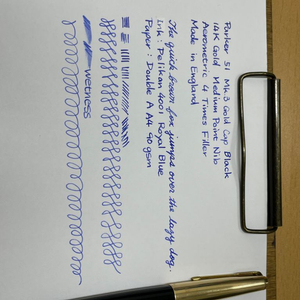 Parker 51 Mk3 Gold Cap Black
14K Gold Medium Point Nib
Aerometric 4 Times Filler
Made in England
The quick brown fox jumps over the lazy dog.
Ink : Pelikan 4001 Royal Blue
Paper : Double A A4 90gsm
wetness